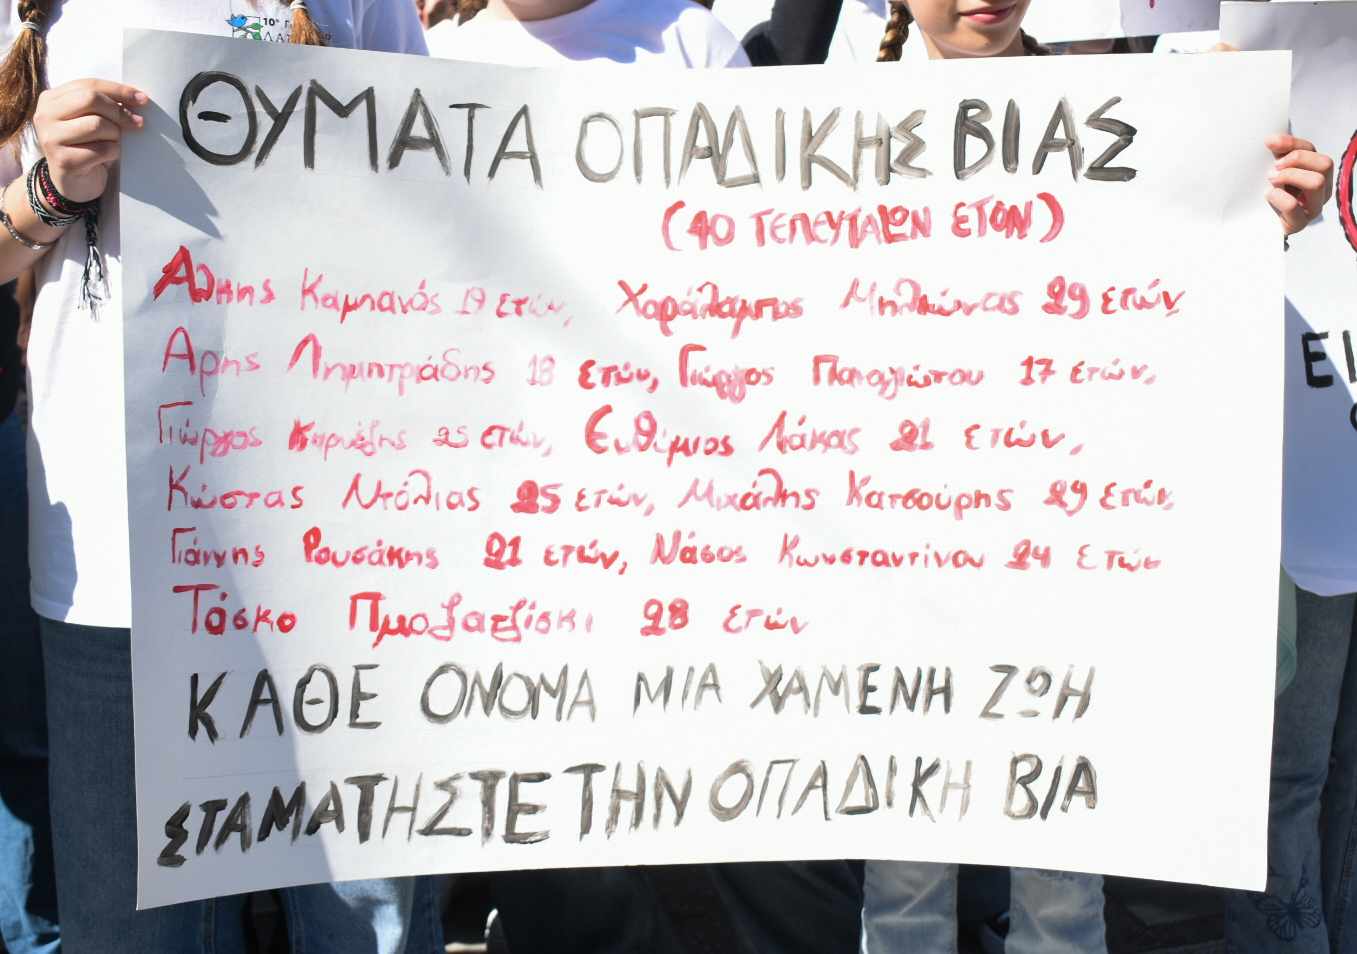 10º
ΘΥΜΑΤΑ ΟΠΑΔΙΚΗΣ ΒΙΑΣ
(40 ΤΕΛΕΥΤΑΙΩΝ ΕΤΟΝ)
Αλκης Καμπανός 19 ετών, Χαράλαμπος Μηλιώνας 29 ετών,
Αρης Δημητριάδης 18 ετών, Γιώργος Παναγιώτου 17 ετών,
Γιώργος 25 ετών, Ευθύμιος Λάκας 21 ετών,
Κώστας Ντόλιας 25 ετών, Μιχάλης Κατσούρης 29 ετών,
Γιάννης Ρουσάκης 21 ετών, Νάσος Κωνσταντίνου 24 ετών
Τόσκο Πμοζατζίσκι 28 ετών
ΚΑΘΕ ΟΝΟΜΑ ΜΙΑ ΧΑΜΕΝΗ ΖΩΗ
ΣΤΑΜΑΤΗΣΤΕ ΤΗΝ ΟΠΑΔΙΚΗ ΒΙΑ